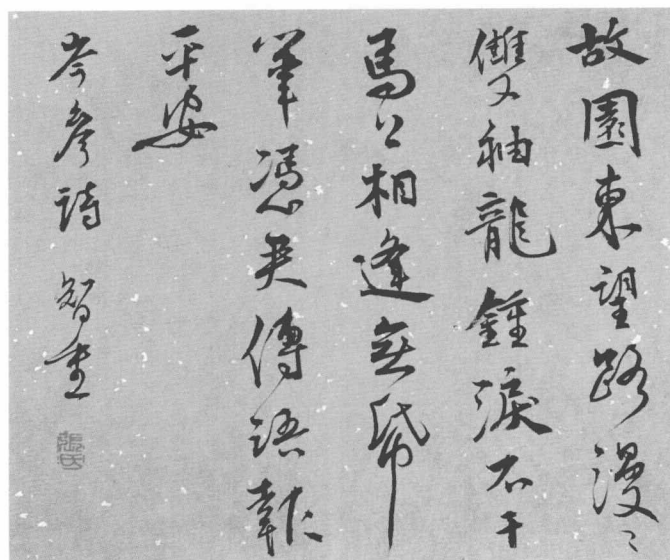 故園東望路漫〻
雙袖龍鍾淚不干
馬上相逢無帋
筆憑君傳語報
平安
岑參詩 智書